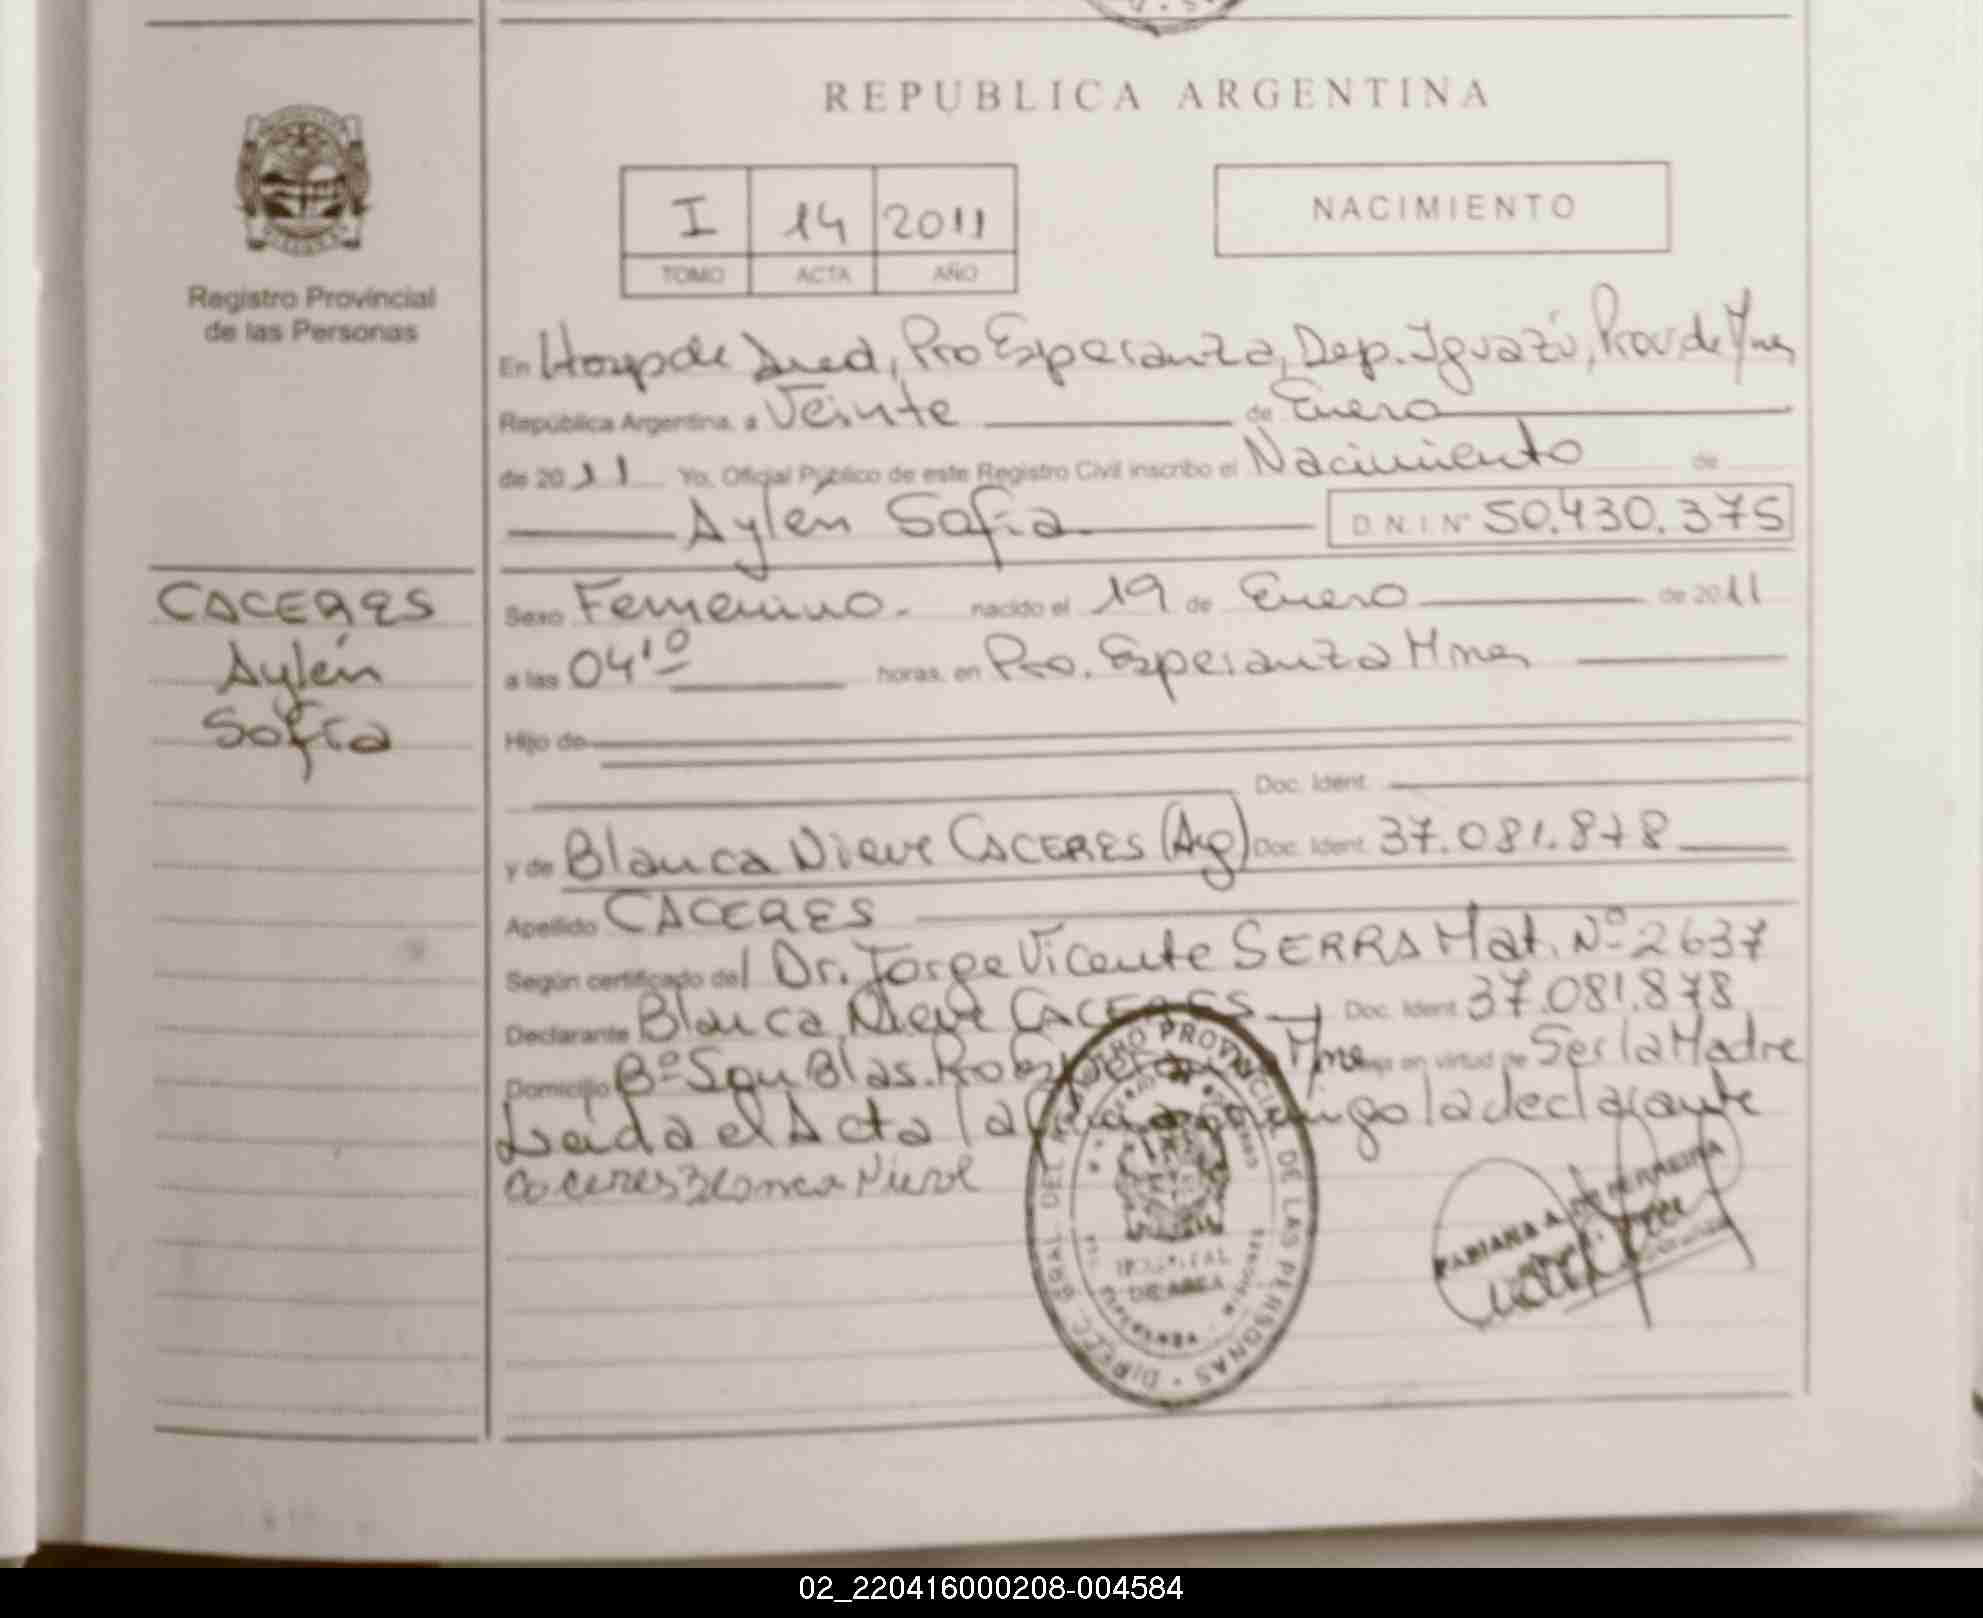 REPUBLICA ARGENTINA
I 14 2011
TOMO ACTA AÑO
NACIMIENTO
Registro Provincial
de las Personas
En Hosp de Área, Pto Esperanza, Dep. Iguazú, Prov de Mnes
República Argentina, a Veinte de Enero
de 2011 Yo, Oficial Público de este Registro Civil inscribo el Nacimiento de
Aylén Sofía D.N.I. Nº 50.430.375
CACERES
Aylén
Sofía
Sexo Femenino. nacido el 19 de Enero de 2011
a las 04¹⁰ horas, en Pto. Esperanza Mnes
Hijo de
Doc. Ident.
y de Blanca Nieve CACERES (Arg) Doc. Ident. 37.081.878
Apellido CACERES
Según certificado del Dr. Jorge Vicente SERRA Mat. Nº 2637
Declarante Blanca Nieve CACERES Doc. Ident. 37.081.878
Domicilio Bº San Blas. Mnes en virtud de Ser la Madre
Leída el Acta la conmigo la declarante
Caceres Blanca Nieve
DIREC. GRAL. DEL REGISTRO PROVINCIAL DE LAS PERSONAS
HOSPITAL
DE AREA
ESPERANZA
FABIANA A. DE FERREIRA
02_220416000208-004584